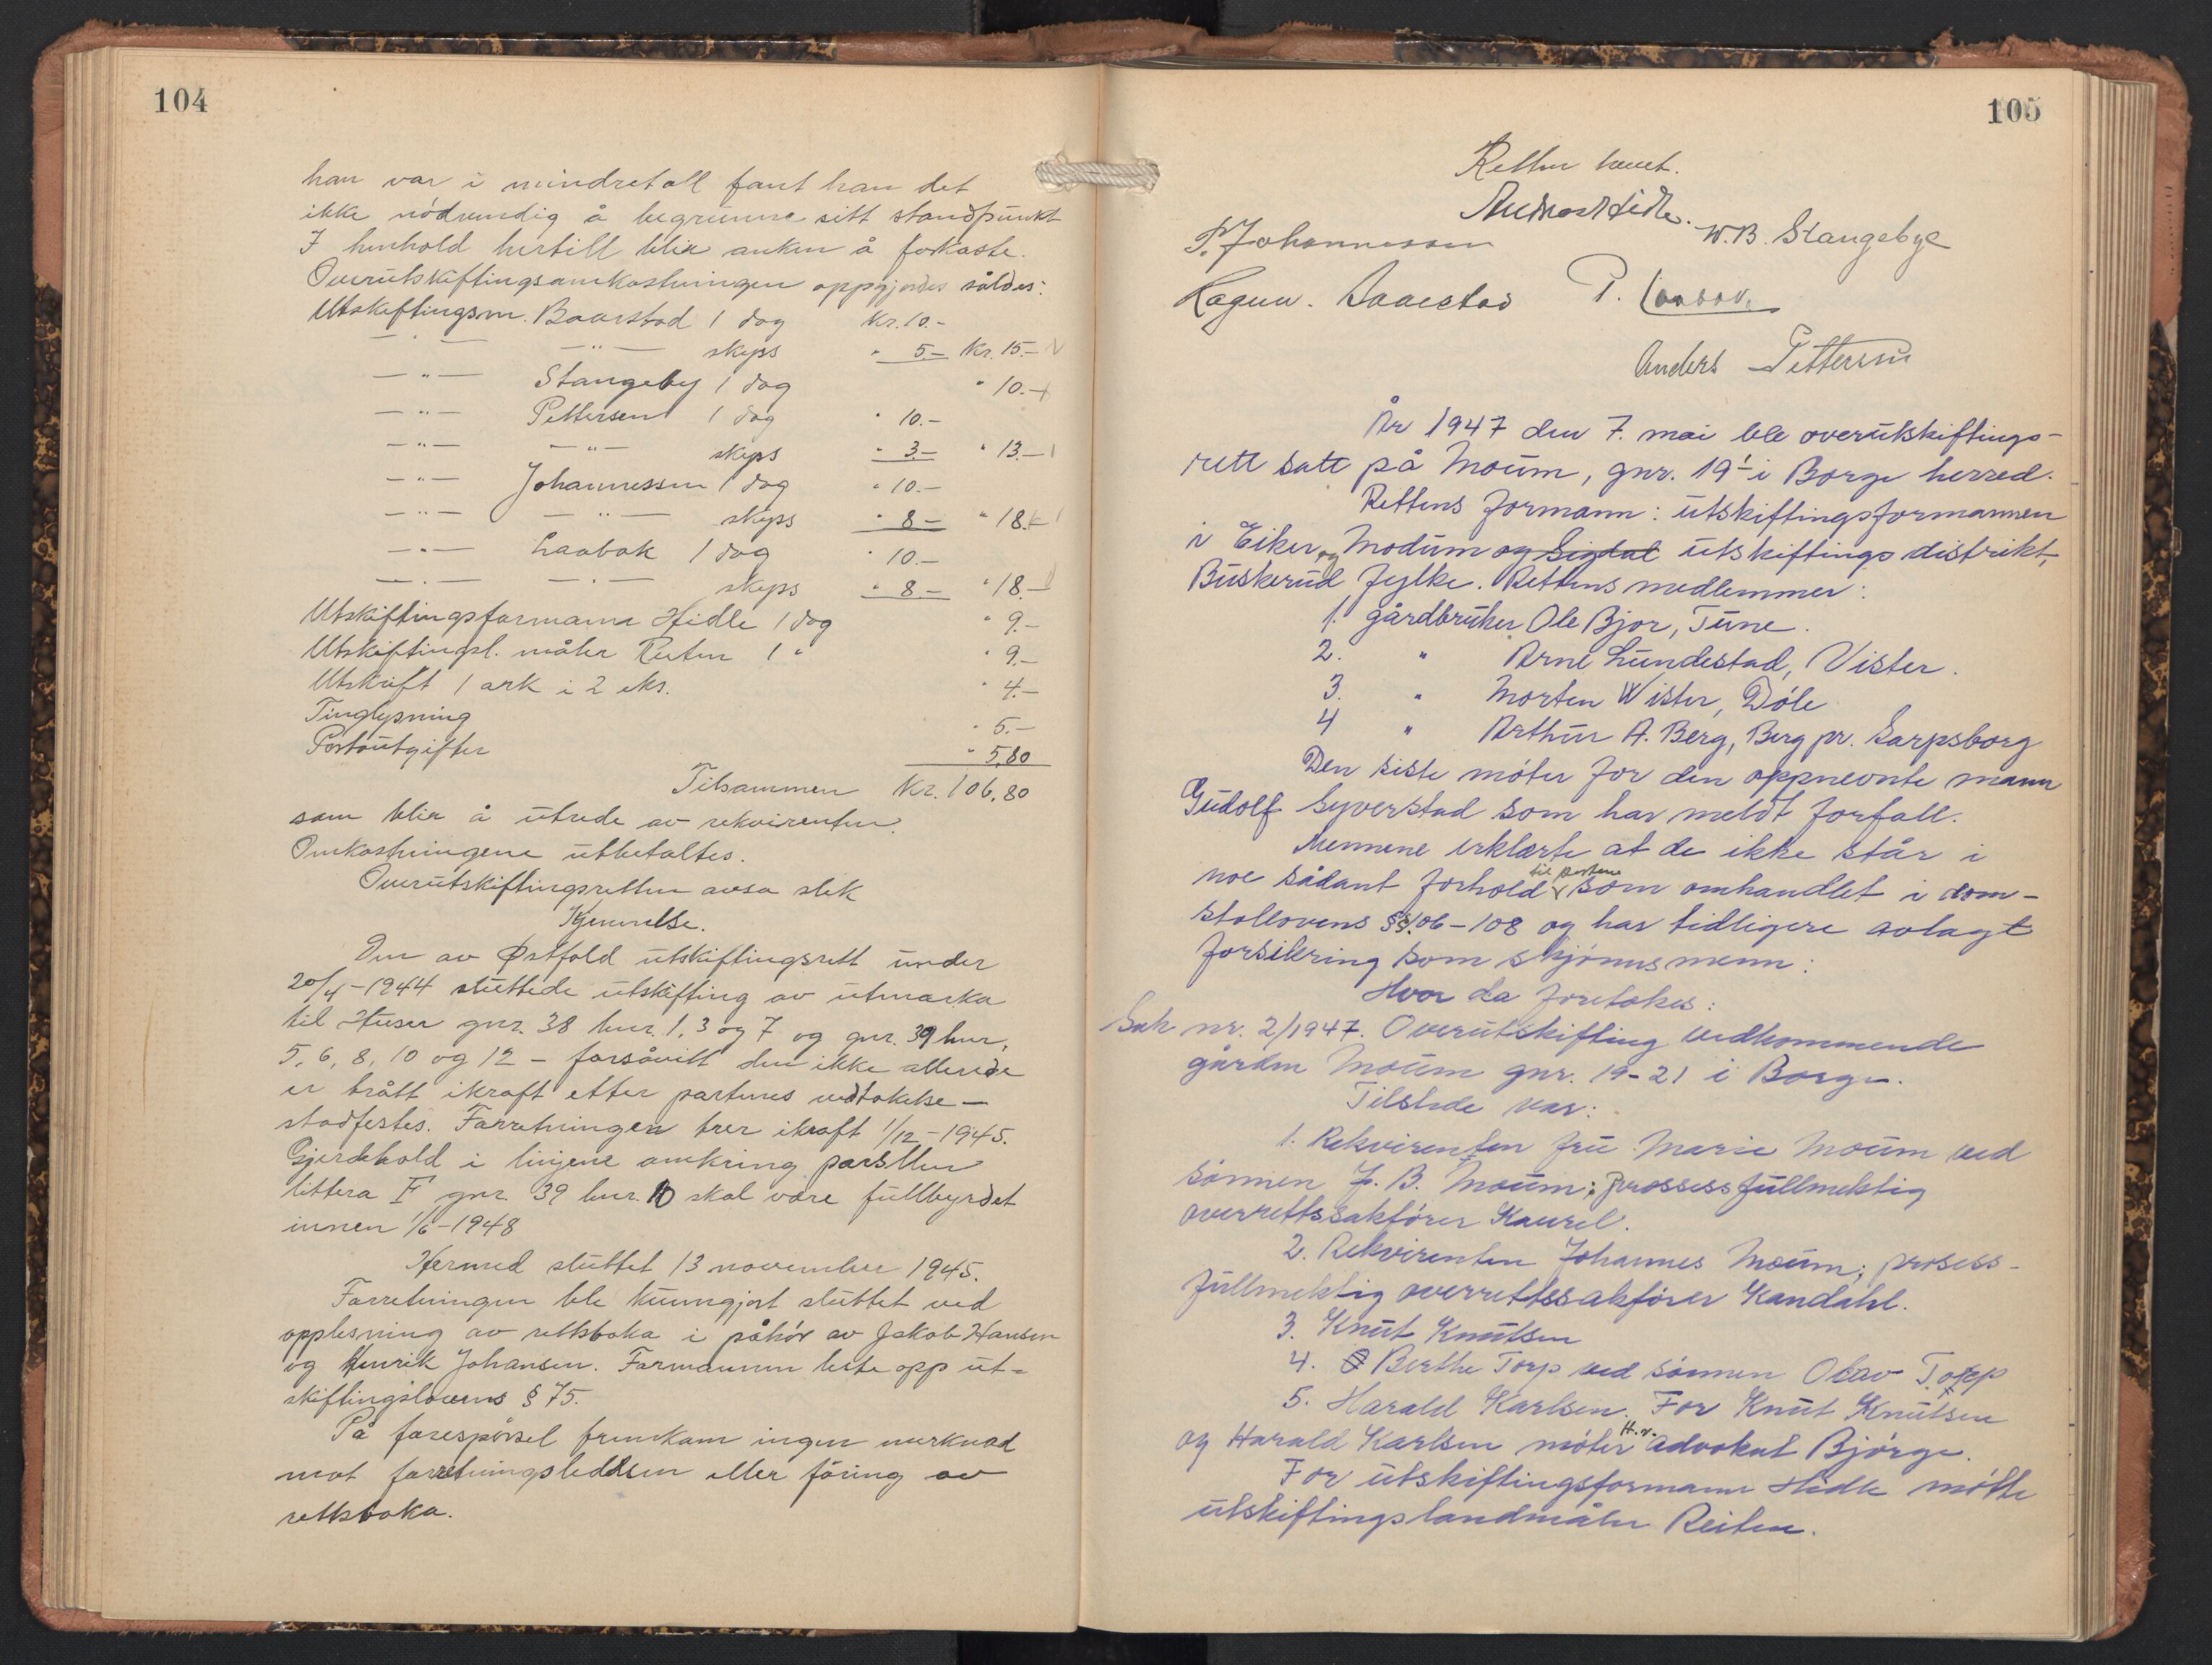 104
han var i mindretall fant han det
ikke nödvendig å begrunne sitt standpunkt
I henhold hertill blir anken å forkaste.
Overutskiftingsomkostningen oppgjordes således:
Utskiftingsm. Baarstad 1 dag Kr. 10.-
— " — — " — skyss " 5.- Kr. 15.-
— " — Stangeby 1 dag " 10.-
— " — Pettersen 1 dag " 10.-
— " — — " — skyss " 3.- " 13.-
— " — Johannessen 1 dag " 10.-
— " — — " — skyss " 8.- " 18.-
— " — Laabak 1 dag " 10.-
— " — — " — skyss " 8.- " 18.-
Utskiftingsformann Hidle 1 dag " 9.-
Utskiftingsl. måler Reiten 1 " " 9.-
Utskrift 1 ark i 2 eks. " 4.-
Tinglysning " 5.-
Portoutgifter " 5,80
Tilsammen Kr. 106,80
som blir å utrede av rekvirenten.
Omkostningene utbetaltes.
Overutskiftingsretten avsa slik
Kjennelse.
Den av Østfold utskiftingsrett under
20/4-1944 sluttede utskifting av utmarka
til Huser gnr. 38 bnr. 1, 3 og 7 og gnr. 39 bnr.
5, 6, 8, 10 og 12 – forsåvitt den ikke allerede
er trått ikraft etter partenes vedtakelse —
stadfestes. Forretningen trer ikraft 1/12-1945.
Gjerdehold i linjene omkring parsellen
littera F gnr. 39 bnr. 10 skal være fullbyrdet
innen 1/6-1948
Hermed sluttet 13 november 1945.
Forretningen ble kunngjort sluttet ved
opplesning av rettsboka i påhör av Jakob Hansen
og Henrik Johansen. Formannen leste opp ut-
skiftingslovens § 75.
På forespörsel fremkom ingen merknad
mot forretningsledelsen eller föring av
rettsboka.
105
Retten hevet.
Andreas Hidle.
P. Johannessen W.B. Stangebye
Ragnv. Baarstad P. Laabak
Anders Pettersen
År 1947 den 7. mai ble overutskiftings-
rett satt på Moum, gnr. 19 i Borge herred.
Rettens formann: utskiftingsformannen
i Eiker og Modum og Sigdal utskiftingsdistrikt,
Buskerud fylke. Rettens medlemmer:
1. gårdbruker Ole Bjor, Tune.
2. " Arne Lundestad, Vister.
3. " Morten Wister, Döle
4 " Arthur A. Berg, Berg pr. Sarpsborg
Den siste möter for den oppnevnte mann
Gudolf Syverstad som har meldt forfall.
Mennene erklærte at de ikke står i
noe sådant forhold til partene som omhandlet i dom-
stollovens §§ 106-108 og har tidligere avlagt
forsikring som skjönnsmenn:
Hvor da foretokes:
Sak nr. 2/1947. Overutskifting vedkommende
gården Moum gnr. 19-21 i Borge.
Tilstede var:
1. Rekvirenten fru Marie Moum ved
sönnen J. B. Moum; prossessfullmektig
overrettssakförer Kaurel.
2. Rekvirenten Johannes Moum; prosess-
fullmektig overrettssakförer Kandahl.
3. Knut Knutsen
4. Berthe Torp ved sönnen Olav Torp
5. Harald Karlsen. For Knut Knutsen
og Harald Karlsen möter H.r. advokat Björge.
For utskiftingsformann Hidle mötte
utskiftingslandmåler Reiten.